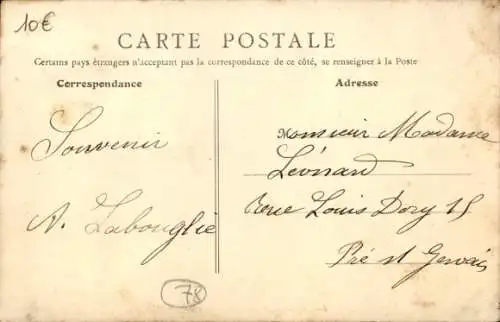 10€
CARTE POSTALE
Certains pays étrangers n'acceptant pas la correspondance de ce côté, se renseigner à la Poste
Correspondance
Adresse
Souvenir
A. Labouglie
Monsieur Madame
Léonard
Rue Louis Dory 15
Pré st Gervais
78